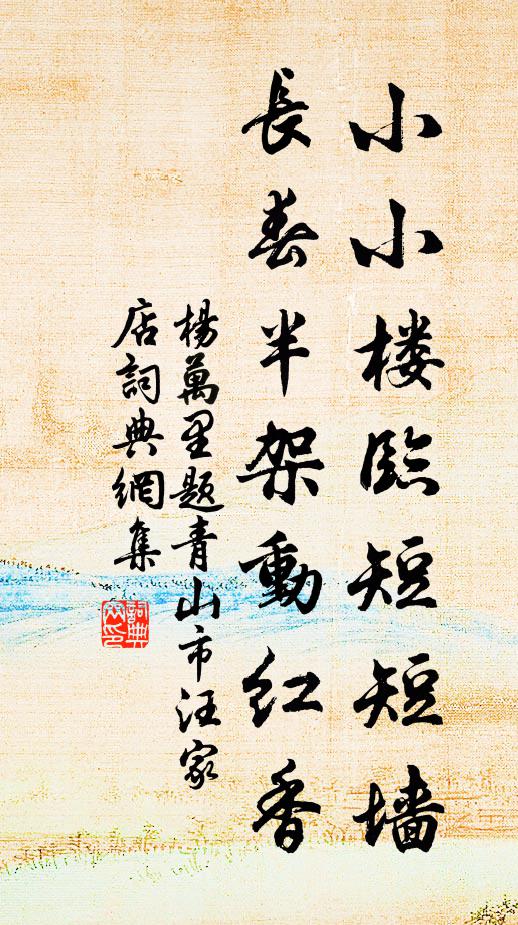 小小楼臨短短墙
長春半架動红香
楊萬里题青山市汪家
店詞典網集
詞典
网印